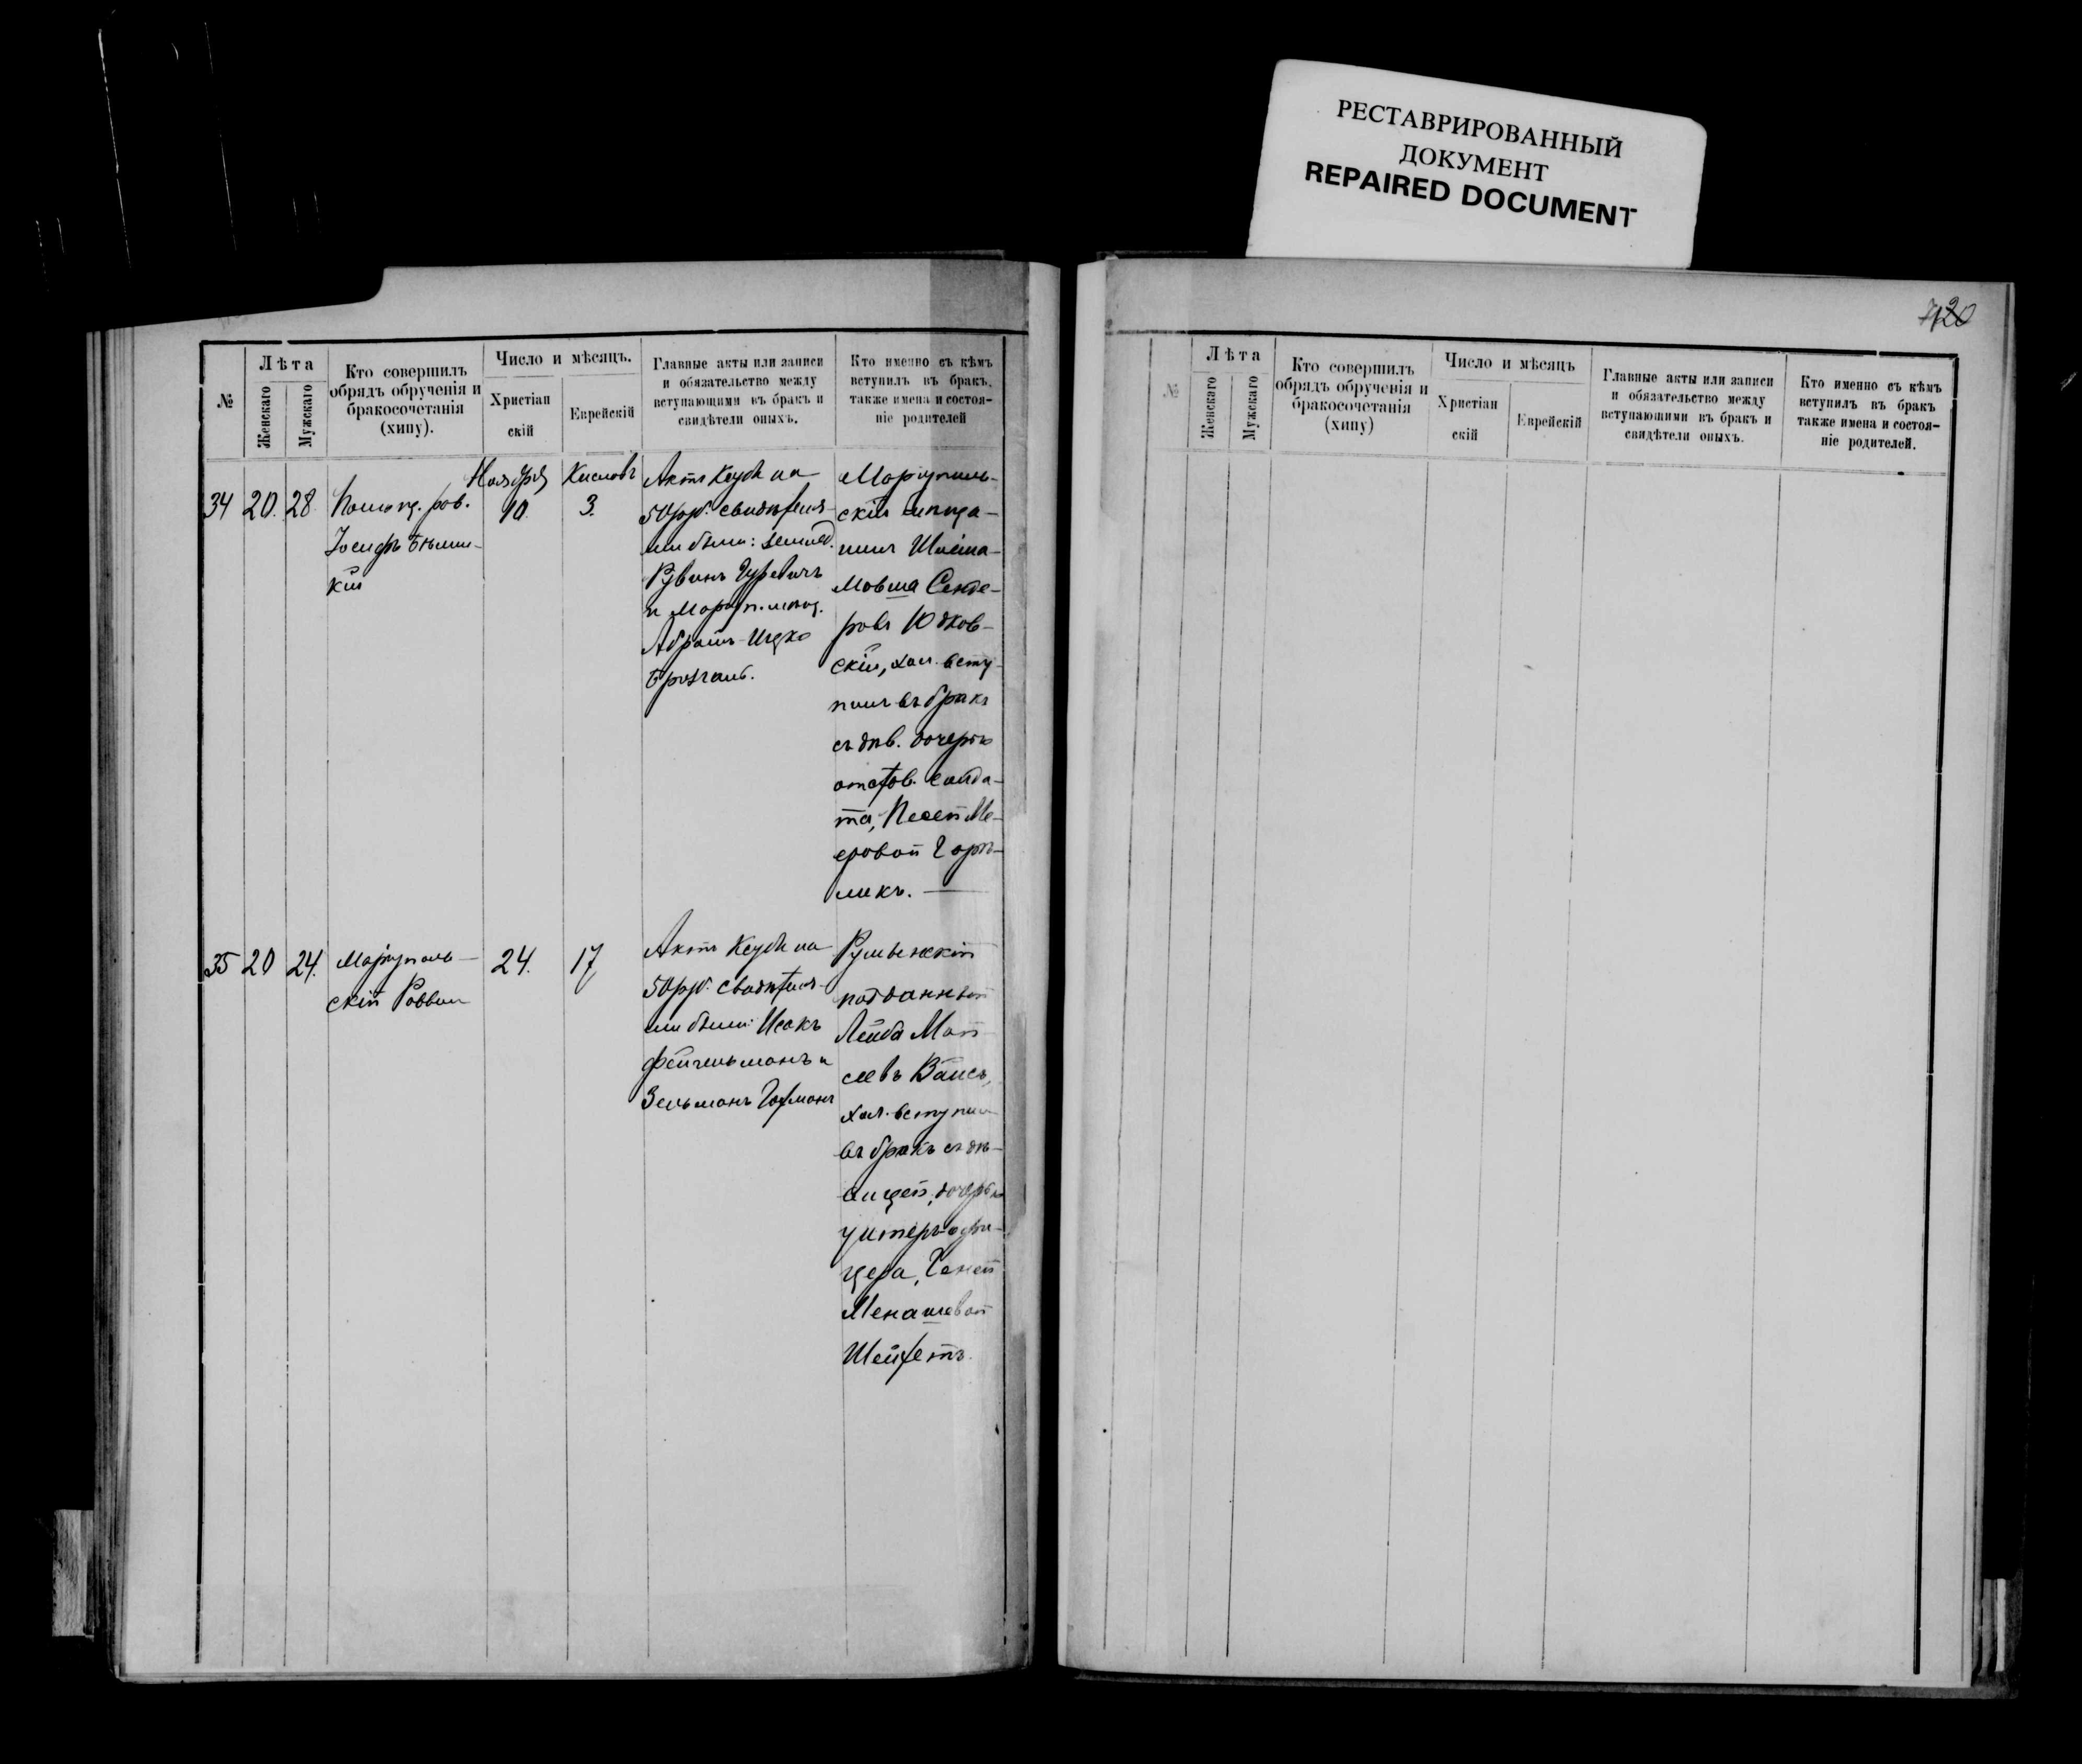 РЕСТАВРИРОВАННЫЙ
ДОКУМЕНТ
REPAIRED DOCUMENT
№
Лѣта
Женскаго
Мужскаго
Кто совершилъ
обрядъ обрученія и
бракосочетанія
(хипу).
Число и мѣсяцъ.
Христіан
скій
Еврейскій
Главные акты или записи
и обязательство между
вступающими въ бракъ и
свидѣтели оныхъ.
Кто именно съ кѣмъ
вступилъ въ бракъ,
также имена и состоя-
ніе родителей
34
20.
28
Помощ. рав.
Іосифъ
кій
Ноября
10.
Кислевъ
3.
Актъ Кеуба на
50 рб. свидѣтеля-
ми были: землед.
Рувинъ Гуревичъ
и Маріуп. мѣщ.
Абрамъ-Ицко
Маріуполь-
скій мѣща-
нинъ
Мовша Сенде-
ровъ Юдков-
скій, хол. всту-
пилъ въ бракъ
съ дѣв. дочерью
отстав. солда-
та, Песей Ме-
еровой Горе-
ликъ.
35
20
24.
Маріуполь-
скій Раввин
24.
17
Актъ Кеуба на
50 рб. свидѣтеля-
ми были: Исакъ
Фейгельманъ и
Зельманъ Гофманъ
Румынскій
подданный
Лейба Мой-
сеевъ Вайсъ,
хол. вступил
въ бракъ съ дѣ-
вицей, дочерью
унтеръ-офи-
цера, Геней
Менашевой
Шейфетъ.
№
Лѣта
Женскаго
Мужскаго
Кто совершилъ
обрядъ обрученія и
бракосочетанія
(хипу)
Число и мѣсяцъ
Христіан
скій
Еврейскій
Главные акты или записи
и обязательство между
вступающими въ бракъ и
свидѣтели оныхъ.
Кто именно съ кѣмъ
вступилъ въ бракъ
также имена и состоя-
ніе родителей.